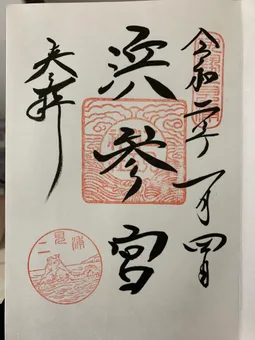 令和二年一月四日
浜参宮
奉拝